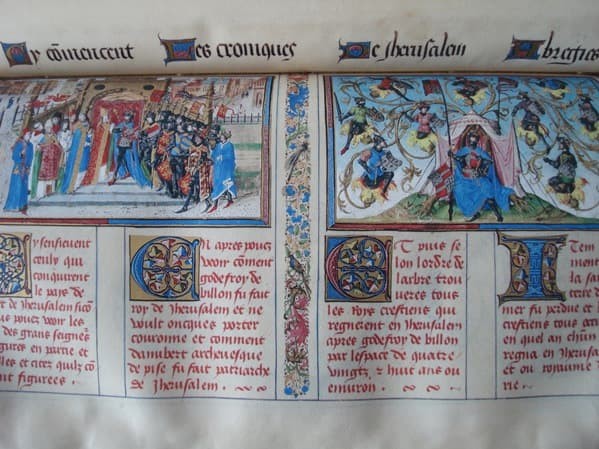 Cy cōmencent Les croniques De Jherusalem Abregies
y sensieuent
ceulx qui
conquirent
le pais de
de Jherusalem sicō
pouez veoir les
des grans
figures en partie et
et citez quilz cō
figurees .
En apres pouez
veoir cōment
godefroy de
billon fu fait
roy de Jherusalem et ne
voult oncques porter
couronne et comment
daimbert archeuesque
de pise fu fait patriarche
de Jherusalem .
Et puis se
lon lordre de
larbre trou
ueres tous
les roys crestiens qui
regnierent en Jherusalem
apres godefroy de billon
par lespace de quatre
vingtz et huit ans ou
enuiron .
Item
ment
la
terre
mer fu perdue et
crestiens tous
en quel an
regna en
et ou royaume
rie .